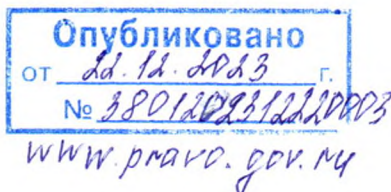 Опубликовано
от 22.12.2023 г.
№ 3801202312220003
www.pravo.gov.ru